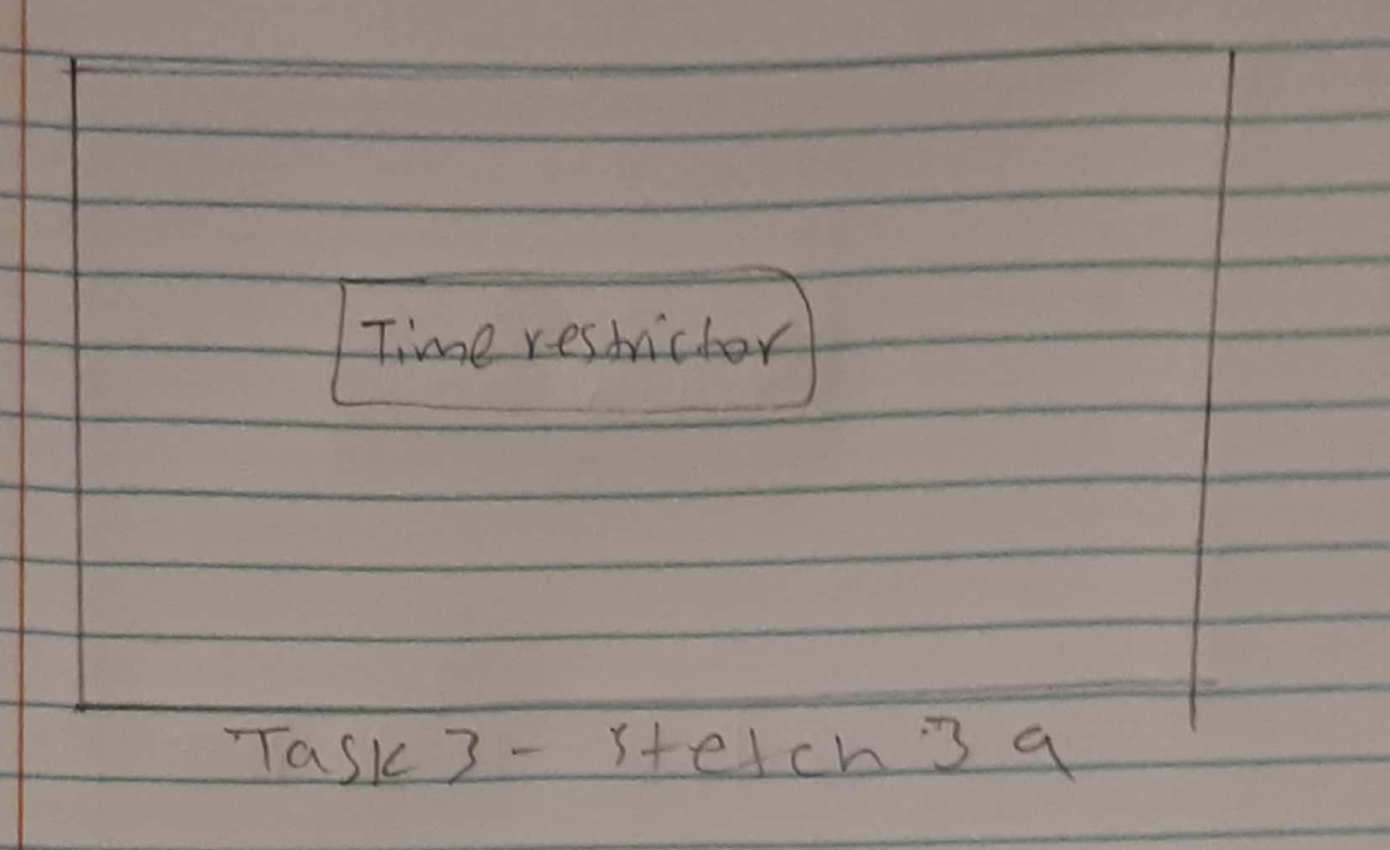 Time restrictor
Task 3 - stetch 3 a